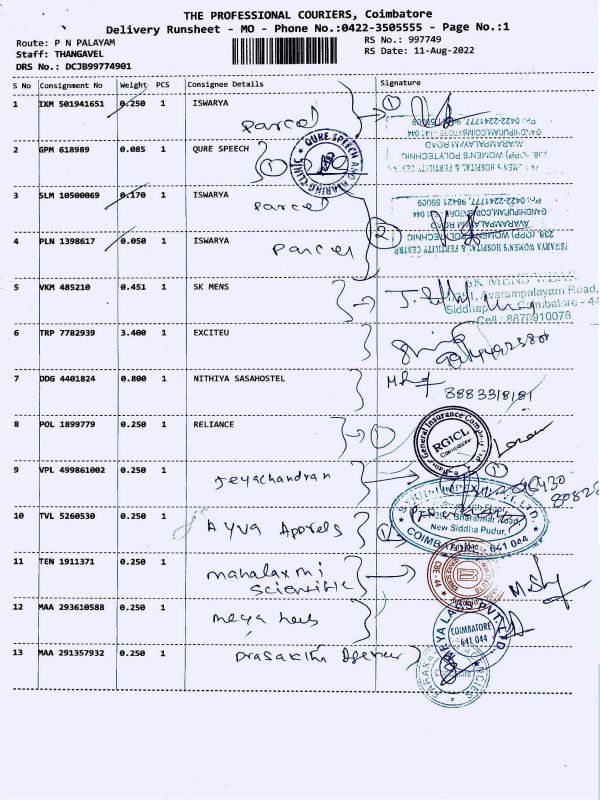 THE PROFESSIONAL COURIERS, Coimbatore
Delivery Runsheet - MO - Phone No.:0422-3505555 - Page No.:1
Route: P N PALAYAM
RS No.: 997749
Staff: THANGAVEL
RS Date: 11-Aug-2022
DRS No.: DCJB99774901
S No Consignment No Weight PCS Consignee Details Signature
1 IXM 501941651 0.250 1 ISWARYA
parcel
PH: 0422-2241777
GANDHIPURAM, COIMBATORE - 641 044
AVARAMPALAYAM ROAD
2 GPM 618989 0.085 1 QURE SPEECH
QURE SPEECH AND HEARING CLINIC
3 SLM 10500069 0.170 1 ISWARYA
parcel
PH: 0422-2241777, 98421 59009
AVARAMPALAYAM ROAD
4 PLN 1398617 0.050 1 ISWARYA
parcel
2
ISWARYA WOMEN'S HOSPITAL & FERTILITY CENTRE
5 VKM 485210 0.451 1 SK MENS
SK MENS WEAR
Avarampalayam Road,
Coimbatore - 44
Cell : 8870910076
6 TRP 7782939 3.400 1 EXCITEU
7 DDG 4401824 0.800 1 NITHIYA SASAHOSTEL
8883318181
8 POL 1899779 0.250 1 RELIANCE
General Insurance Company
RGICL
9 VPL 499861002 0.250 1
Jeyachandran
10 TVL 5260530 0.250 1
Ayva Apparels
New Siddha Pudur,
COIMBATORE 641 044
11 TEN 1911371 0.250 1
mahalaxmi
scientific
12 MAA 293610588 0.250 1
COIMBATORE
641 044
13 MAA 291357932 0.250 1